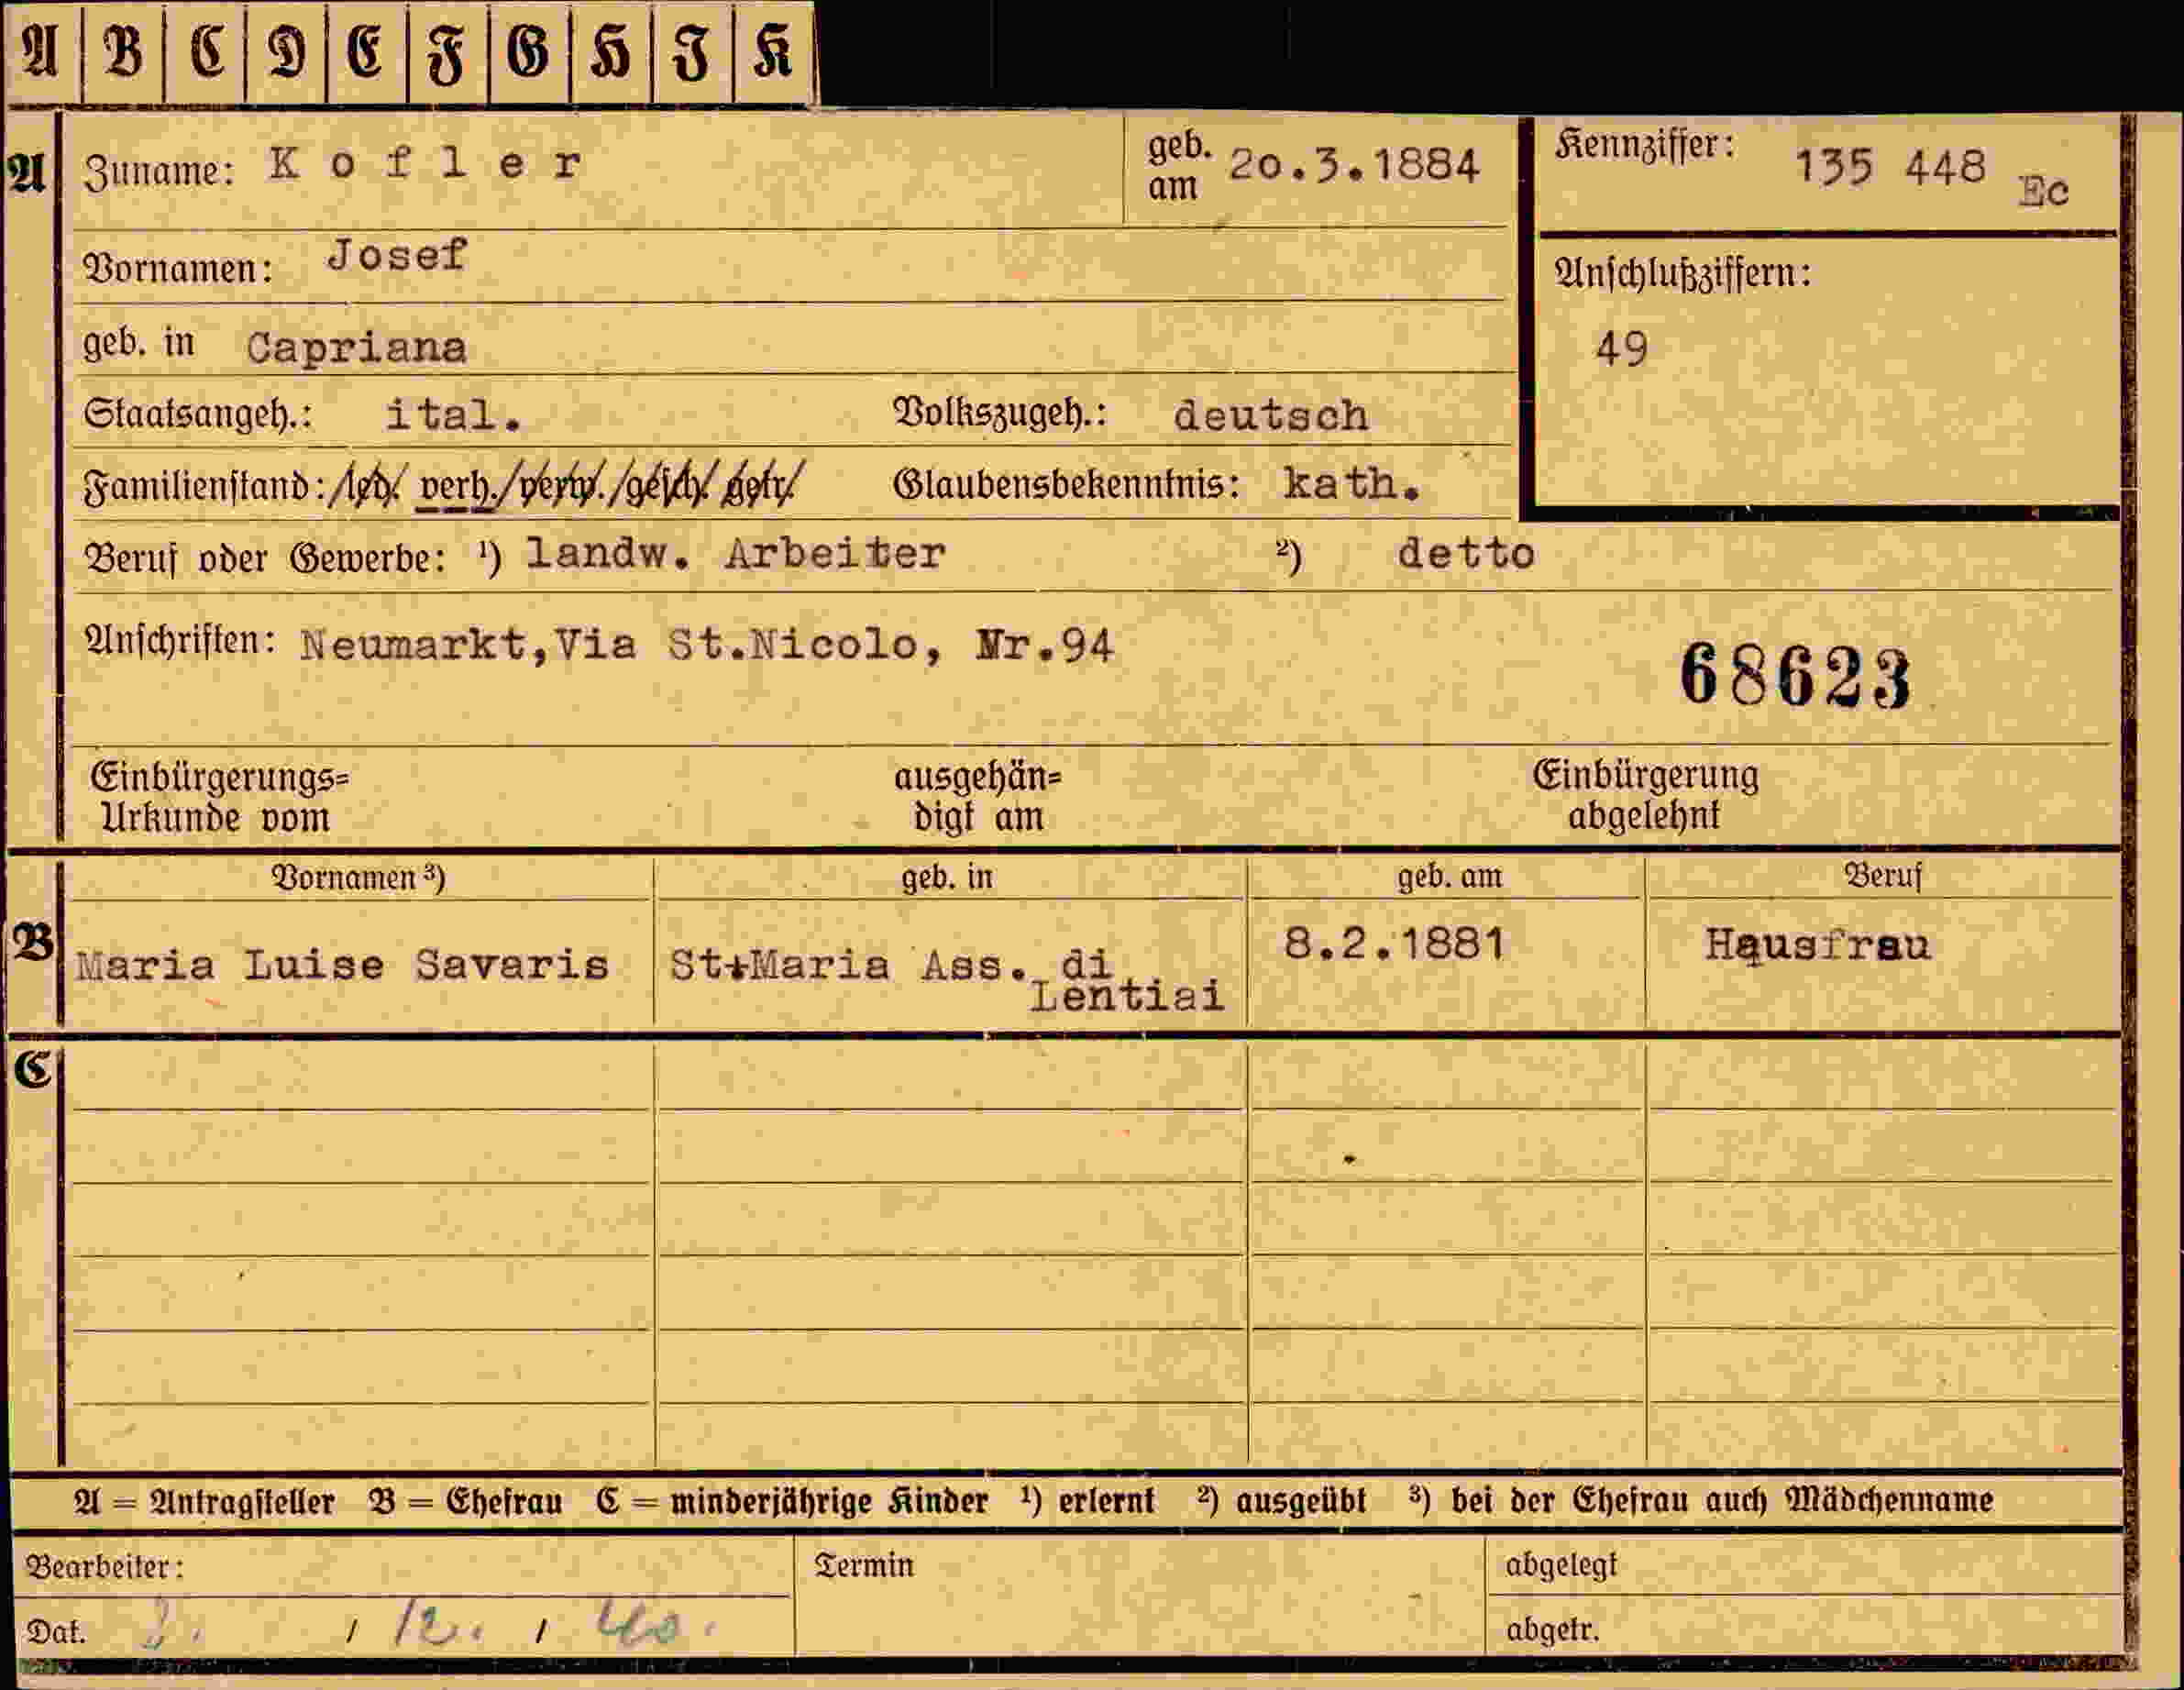 A B C D E F G H J K
A Zuname: Kofler geb. am 20.3.1884 Kennziffer: 135 448 Ec
Vornamen: Josef Anschlußziffern:
geb. in Capriana 49
Staatsangeh.: ital. Volkszugeh.: deutsch
Familienstand: /led./ verh./verw./gesch./getr./ Glaubensbekenntnis: kath.
Beruf oder Gewerbe: ¹) landw. Arbeiter ²) detto
Anschriften: Neumarkt,Via St.Nicolo, Nr.94
68623
Einbürgerungs= ausgehän= Einbürgerung
Urkunde vom digt am abgelehnt
Vornamen ³) geb. in geb. am Beruf
B Maria Luise Savaris St+Maria Ass. di 8.2.1881 Hausfrau
Lentiai
C
A = Antragsteller B = Ehefrau C = minderjährige Kinder ¹) erlernt ²) ausgeübt ³) bei der Ehefrau auch Mädchenname
Bearbeiter: Termin abgelegt
Dat. / 12. / 40. abgetr.